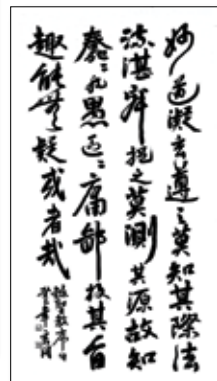 妙道凝玄遵之莫知其際法
流湛寂挹之莫測其源故知
蠢々凡愚區々庸鄙投其旨
趣能無疑或者哉
聖教序